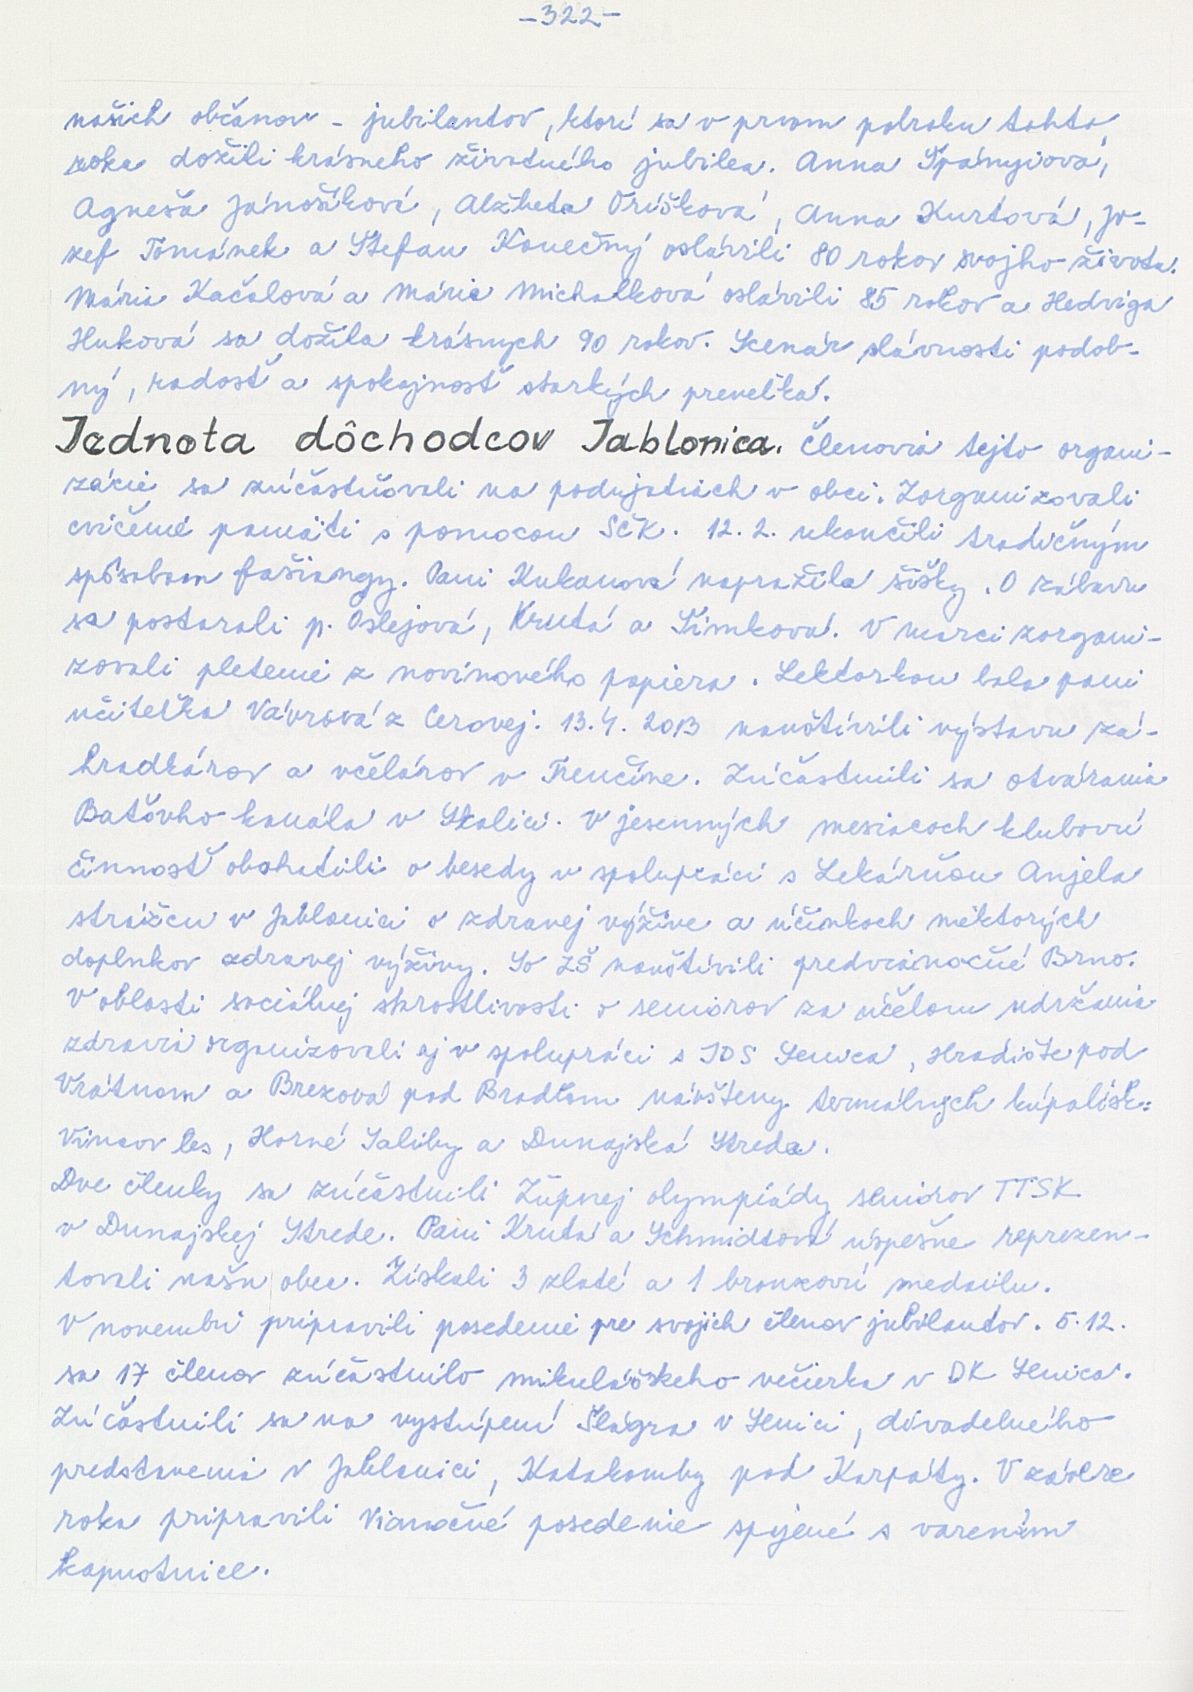 -322-
našich občanov - jubilantov, ktorí sa v prvom polroku tohto
roka dožili krásneho životného jubilea. Anna Špányiová,
Agneša Jánošíková, Alžbeta Oríšková, Anna Kurtová, Jo-
zef Tománek a Štefan Konečný oslávili 80 rokov svojho života.
Mária Kačalová a Mária Michalková oslávili 85 rokov a Hedviga
Huková sa dožila krásnych 90 rokov. Scenár slávnosti podob-
ný, radosť a spokojnosť starkých preveľká.
Jednota dôchodcov Jablonica. Členovia tejto organi-
zácie sa zúčastňovali na podujatiach v obci. Zorganizovali
cvičenie pamäti s pomocou SČK. 12.2. ukončili tradičným
spôsobom fašiangy. Pani Kukanová napražila šišky. O zábavu
sa postarali p. Oslejová, Krutá a Šimková. V marci zorgani-
zovali pletenie z novinového papiera. Lektorkou bola pani
učiteľka Vávrová z Cerovej. 13.4. 2013 navštívili výstavu zá-
hradkárov a včelárov v Trenčíne. Zúčastnili sa otvárania
Baťovho kanála v Skalici. V jesenných mesiacoch klubovú
činnosť obohatili o besedy v spolupráci s Lekárňou Anjela
strážcu v Jablonici o zdravej výžive a účinkoch niektorých
doplnkov zdravej výživy. So ZŠ navštívili predvianočné Brno.
V oblasti sociálnej starostlivosti o seniorov za účelom udržania
zdravia organizovali aj v spolupráci s JDS Senica, Hradište pod
Vrátnom a Brezová pod Bradlom návštevy termálnych kúpalísk:
Vincov les, Horné Saliby a Dunajská Streda.
Dve členky sa zúčastnili Župnej olympiády seniorov TTSK
v Dunajskej Strede. Pani Krutá a Schmidtová úspešne reprezen-
tovali našu obec. Získali 3 zlaté a 1 bronzovú medailu.
V novembri pripravili posedenie pre svojich členov jubilantov. 5.12.
sa 17 členov zúčastnilo mikulášskeho večierka v DK Senica.
Zúčastnili sa na vystúpení Šlágra v Senici, divadelného
predstavenia v Jablonici, Katakomby pod Karpaty. V závere
roka pripravili Vianočné posedenie spojené s varením
kapustnice.